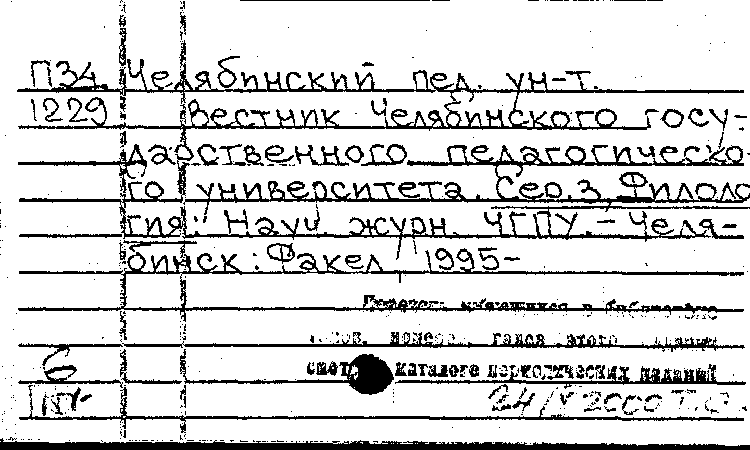 П34. Челябинский пед. ун-т.
1229 Вестник Челябинского госу-
дарственного педагогическо-
го университета. Сер.3, Филоло
гия: Науч. журн. ЧГПУ. – Челя-
бинск: Факел, 1995-
в библиотеке
номеров, годов этого издания
смот каталоге периодических изданий
6
24/V 2000 г.